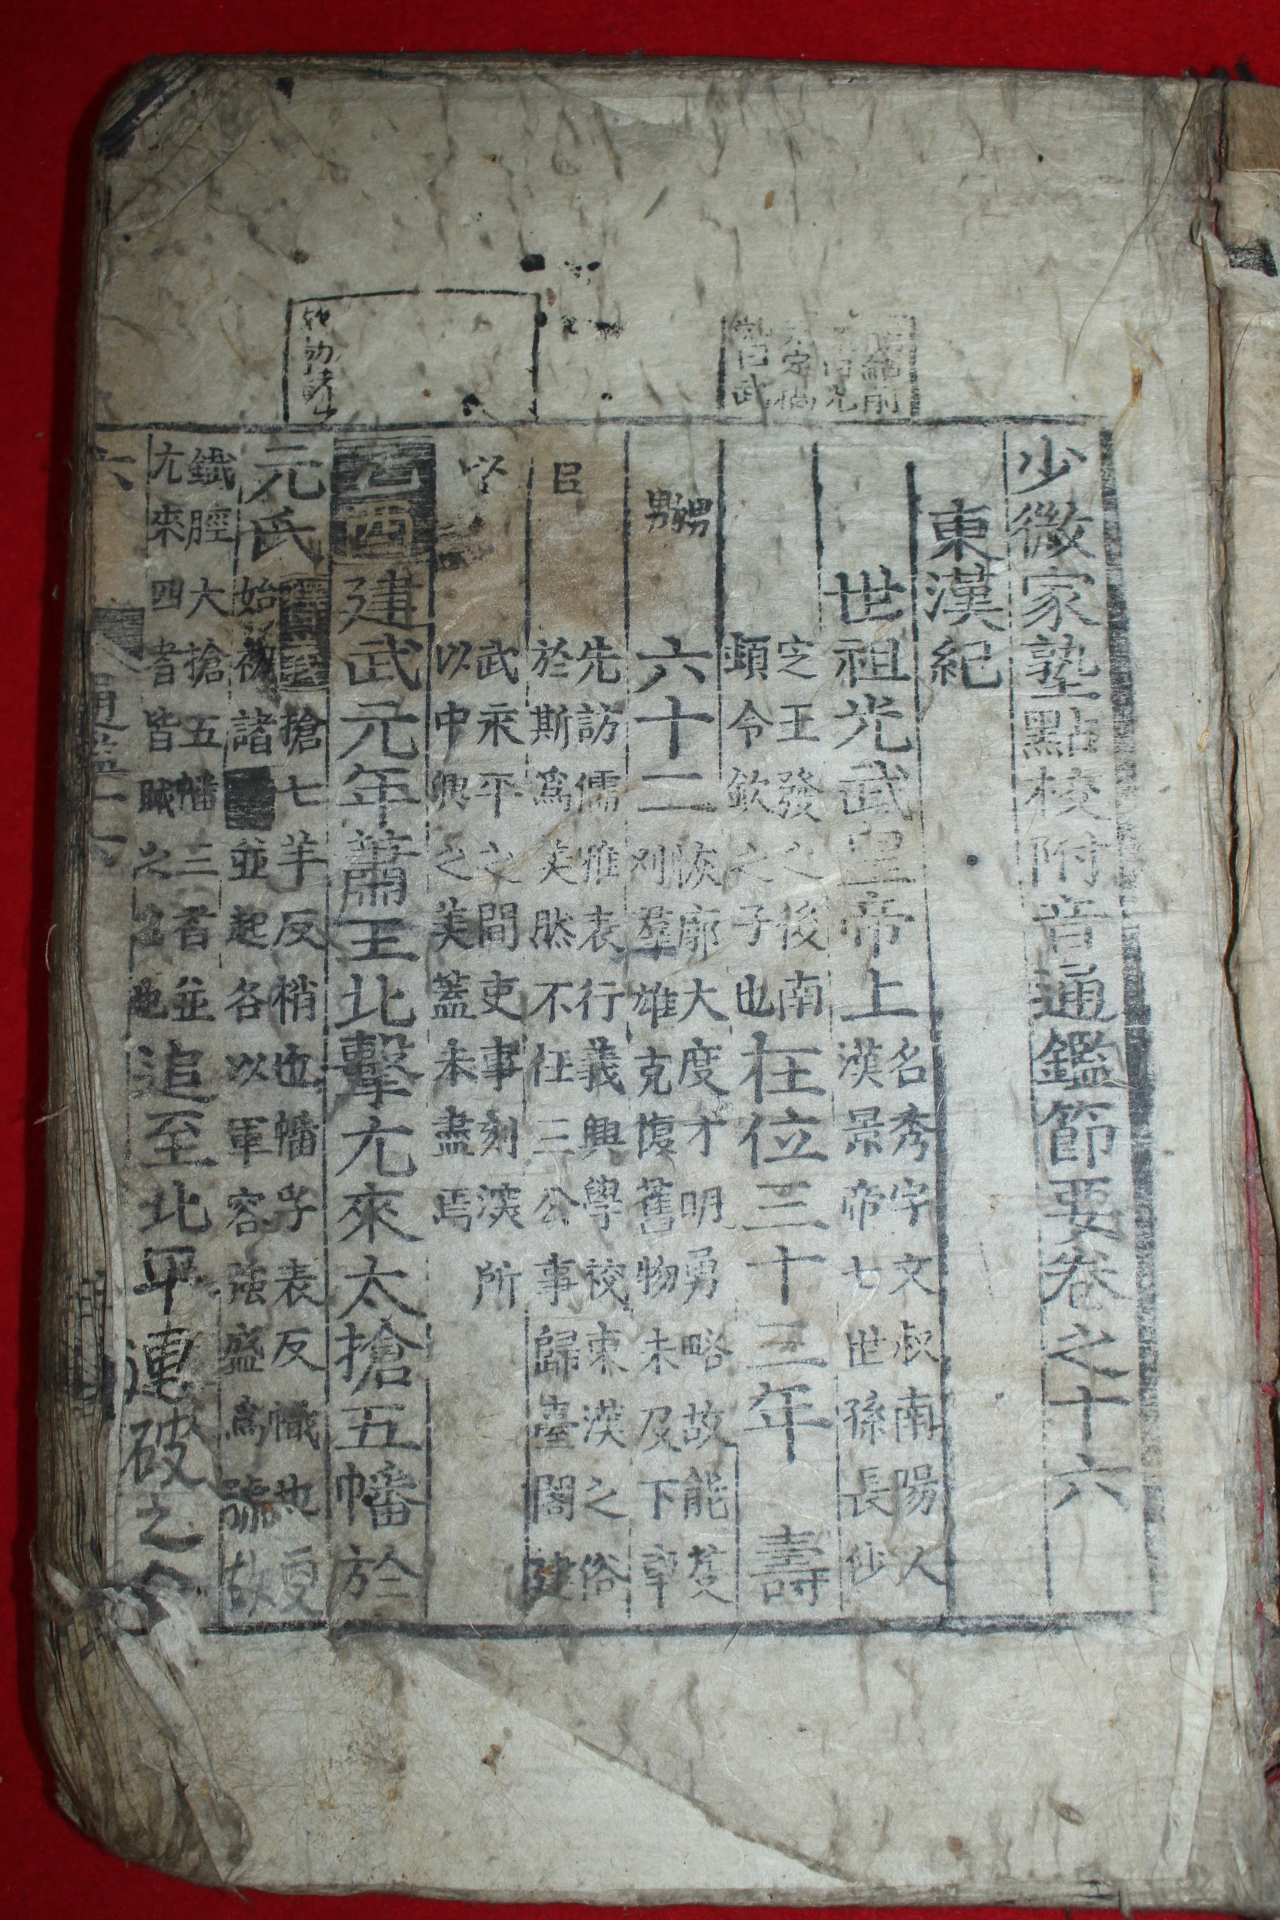 少微家塾點校附音通鑑節要卷之十六
東漢紀
世祖光武皇帝上
名秀字文叔南陽人
漢景帝七世孫長沙
定王發之後南
頓令欽之子也
在位三十三年 壽
六十二
恢廓大度才明勇略故能芟
刈羣雄克復舊物未及下車
先訪儒雅表行義興學校東漢之俗
於斯爲美然不任三公事歸臺閣建
武永平之間吏事刻深所
以中興之美蓋未盡焉
乙酉建武元年蕭王北擊尤來大搶五幡於
元氏
搶七羊反稍也幡孚表反幟也夏
始初諸 並起各以軍容強盛爲號故
鐵脛大搶五幡三者並
尤來四者皆賊之名也
追至北平連破之